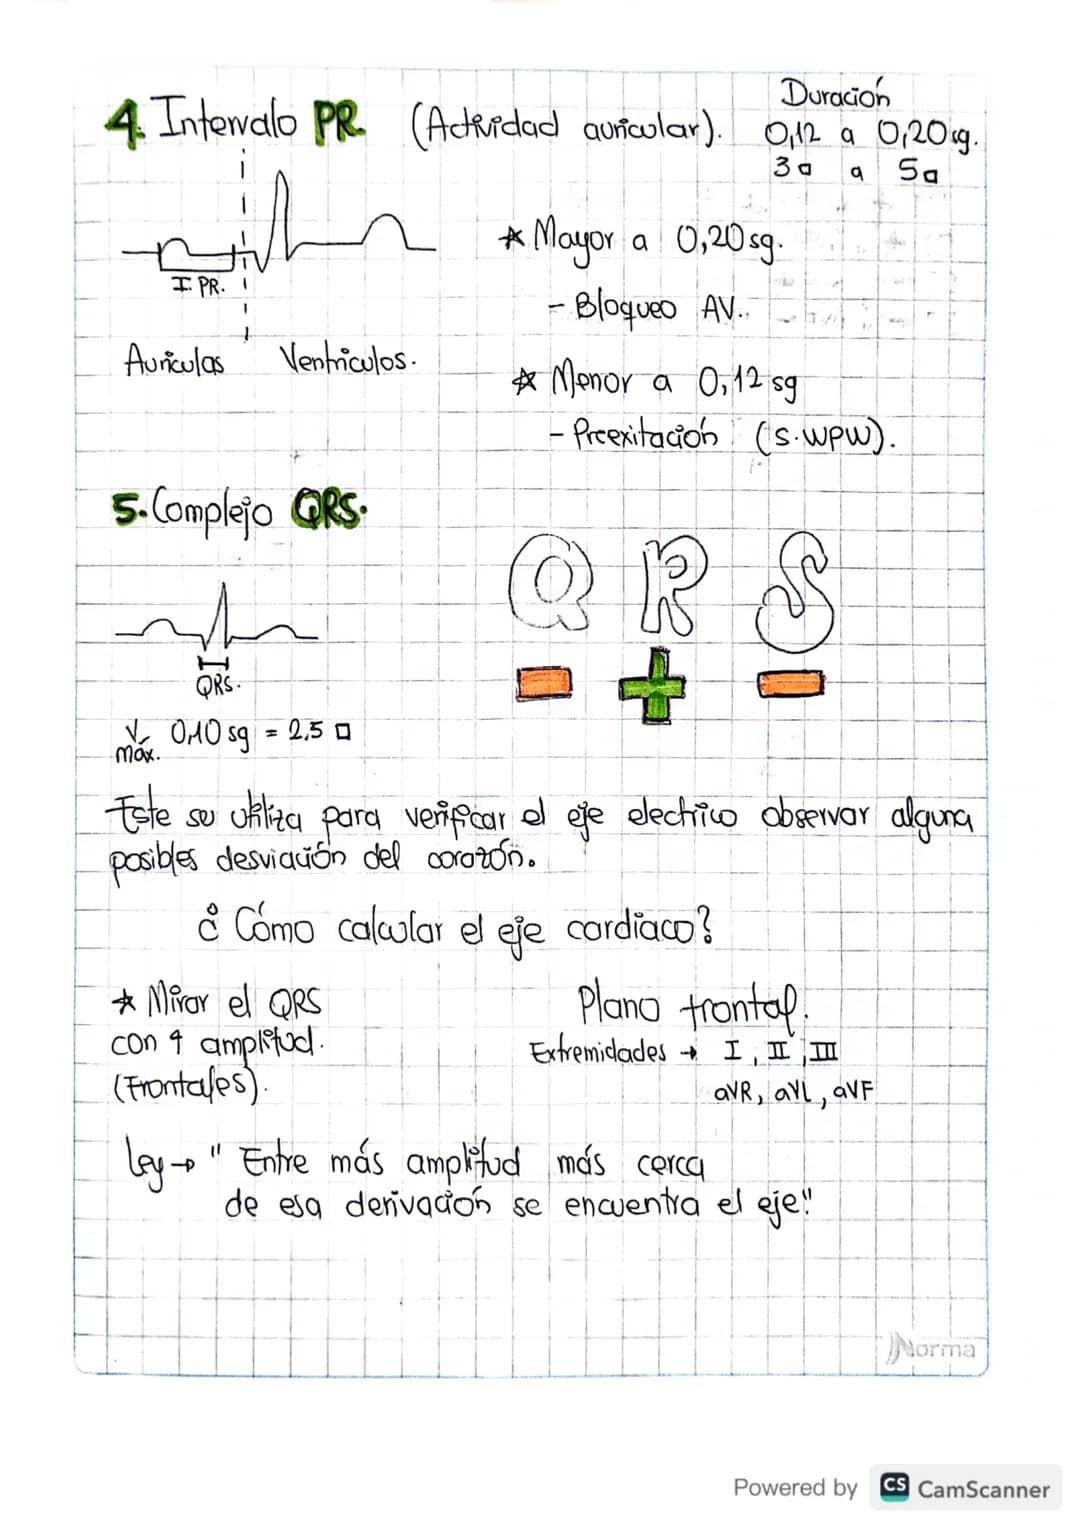 4. Intervalo PR. (Actividad auricular).
Duración
0,12 a 0,20 sg.
3 □ a 5 □
I. PR.
Auriculas Ventriculos.
* Mayor a 0,20 sg.
- Bloqueo AV.
* Menor a 0,12 sg
- Preexitación (S. WPW).
5. Complejo QRS.
QRS
- + -
QRS.
máx. 0,10 sg = 2,5 □
Este se utiliza para verificar el eje electrico observar alguna
posibles desviación del corazón.
¿Cómo calcular el eje cardiaco?
* Mirar el QRS
con ↑ amplitud.
(Frontales).
Plano frontal.
Extremidades → I, II, III
aVR, aVL, aVF
Ley → "Entre más amplitud más cerca
de esa derivación se encuentra el eje"
Norma
Powered by CS CamScanner